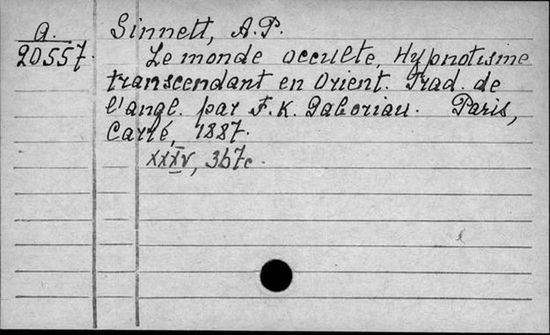 A.
20557.
Sinnett, A.P.
Le monde occulte, Hypnotisme
transcendant en Orient. Trad. de
l'angl. par F.K. Gaboriau. Paris,
Carré, 1887.
XXXIV, 367c.